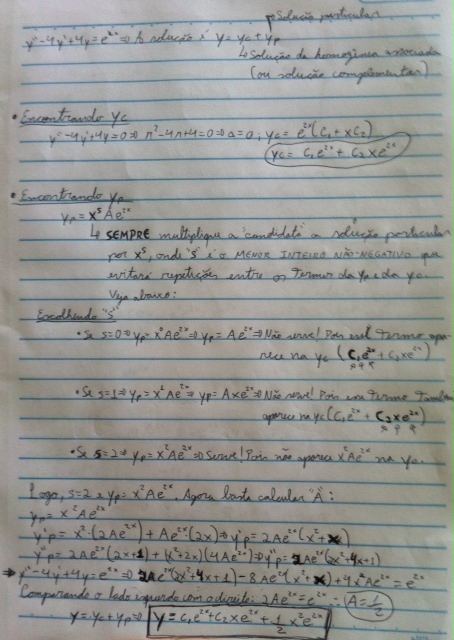 Solução particular
y"-4y'+4y=e^{2x} ⇒ A solução é y=y_c+y_p
↳ Solução da homogênea associada
(ou solução complementar)
• Encontrando y_c
y"-4y'+4y=0 ⇒ r²-4r+4=0 ⇒ Δ=0; y_c=e^{2x}(C_1+xC_2)
y_c=C_1e^{2x}+C_2xe^{2x}
• Encontrando y_p
y_p=x^sAe^{2x}
↳ SEMPRE multiplique a "candidata" a solução particular
por x^s, onde "s" é o MENOR INTEIRO NÃO-NEGATIVO que
evitará repetições entre os termos da y_p e da y_c.
Veja abaixo:
Escolhendo "s"
• Se s=0 ⇒ y_p=x^0Ae^{2x} ⇒ y_p=Ae^{2x} ⇒ Não serve! Pois esse termo apa-
rece na y_c (C_1e^{2x}+C_2xe^{2x})
• Se s=1 ⇒ y_p=x^1Ae^{2x} ⇒ y_p=Axe^{2x} ⇒ Não serve! Pois esse termo também
aparece na y_c (C_1e^{2x}+C_2xe^{2x})
• Se s=2 ⇒ y_p=x²Ae^{2x} ⇒ Serve! Pois não aparece x²Ae^{2x} na y_c.
Logo, s=2 e y_p=x²Ae^{2x}. Agora basta calcular "A":
y_p=x²Ae^{2x}
y'_p=x²·(2Ae^{2x})+Ae^{2x}(2x) ⇒ y'_p=2Ae^{2x}(x²+x)
y"_p=2Ae^{2x}(2x+1)+(x²+x)(4Ae^{2x}) ⇒ y"_p=2Ae^{2x}(2x²+4x+1)
→ y"-4y'+4y=e^{2x} ⇒ 2Ae^{2x}(2x²+4x+1)-8Ae^{2x}(x²+x)+4x²Ae^{2x}=e^{2x}
Comparando o lado esquerdo com o direito: 2Ae^{2x}=e^{2x} ∴ A=1/2
y=y_c+y_p ⇒ y=C_1e^{2x}+C_2xe^{2x}+1/2 x²e^{2x}